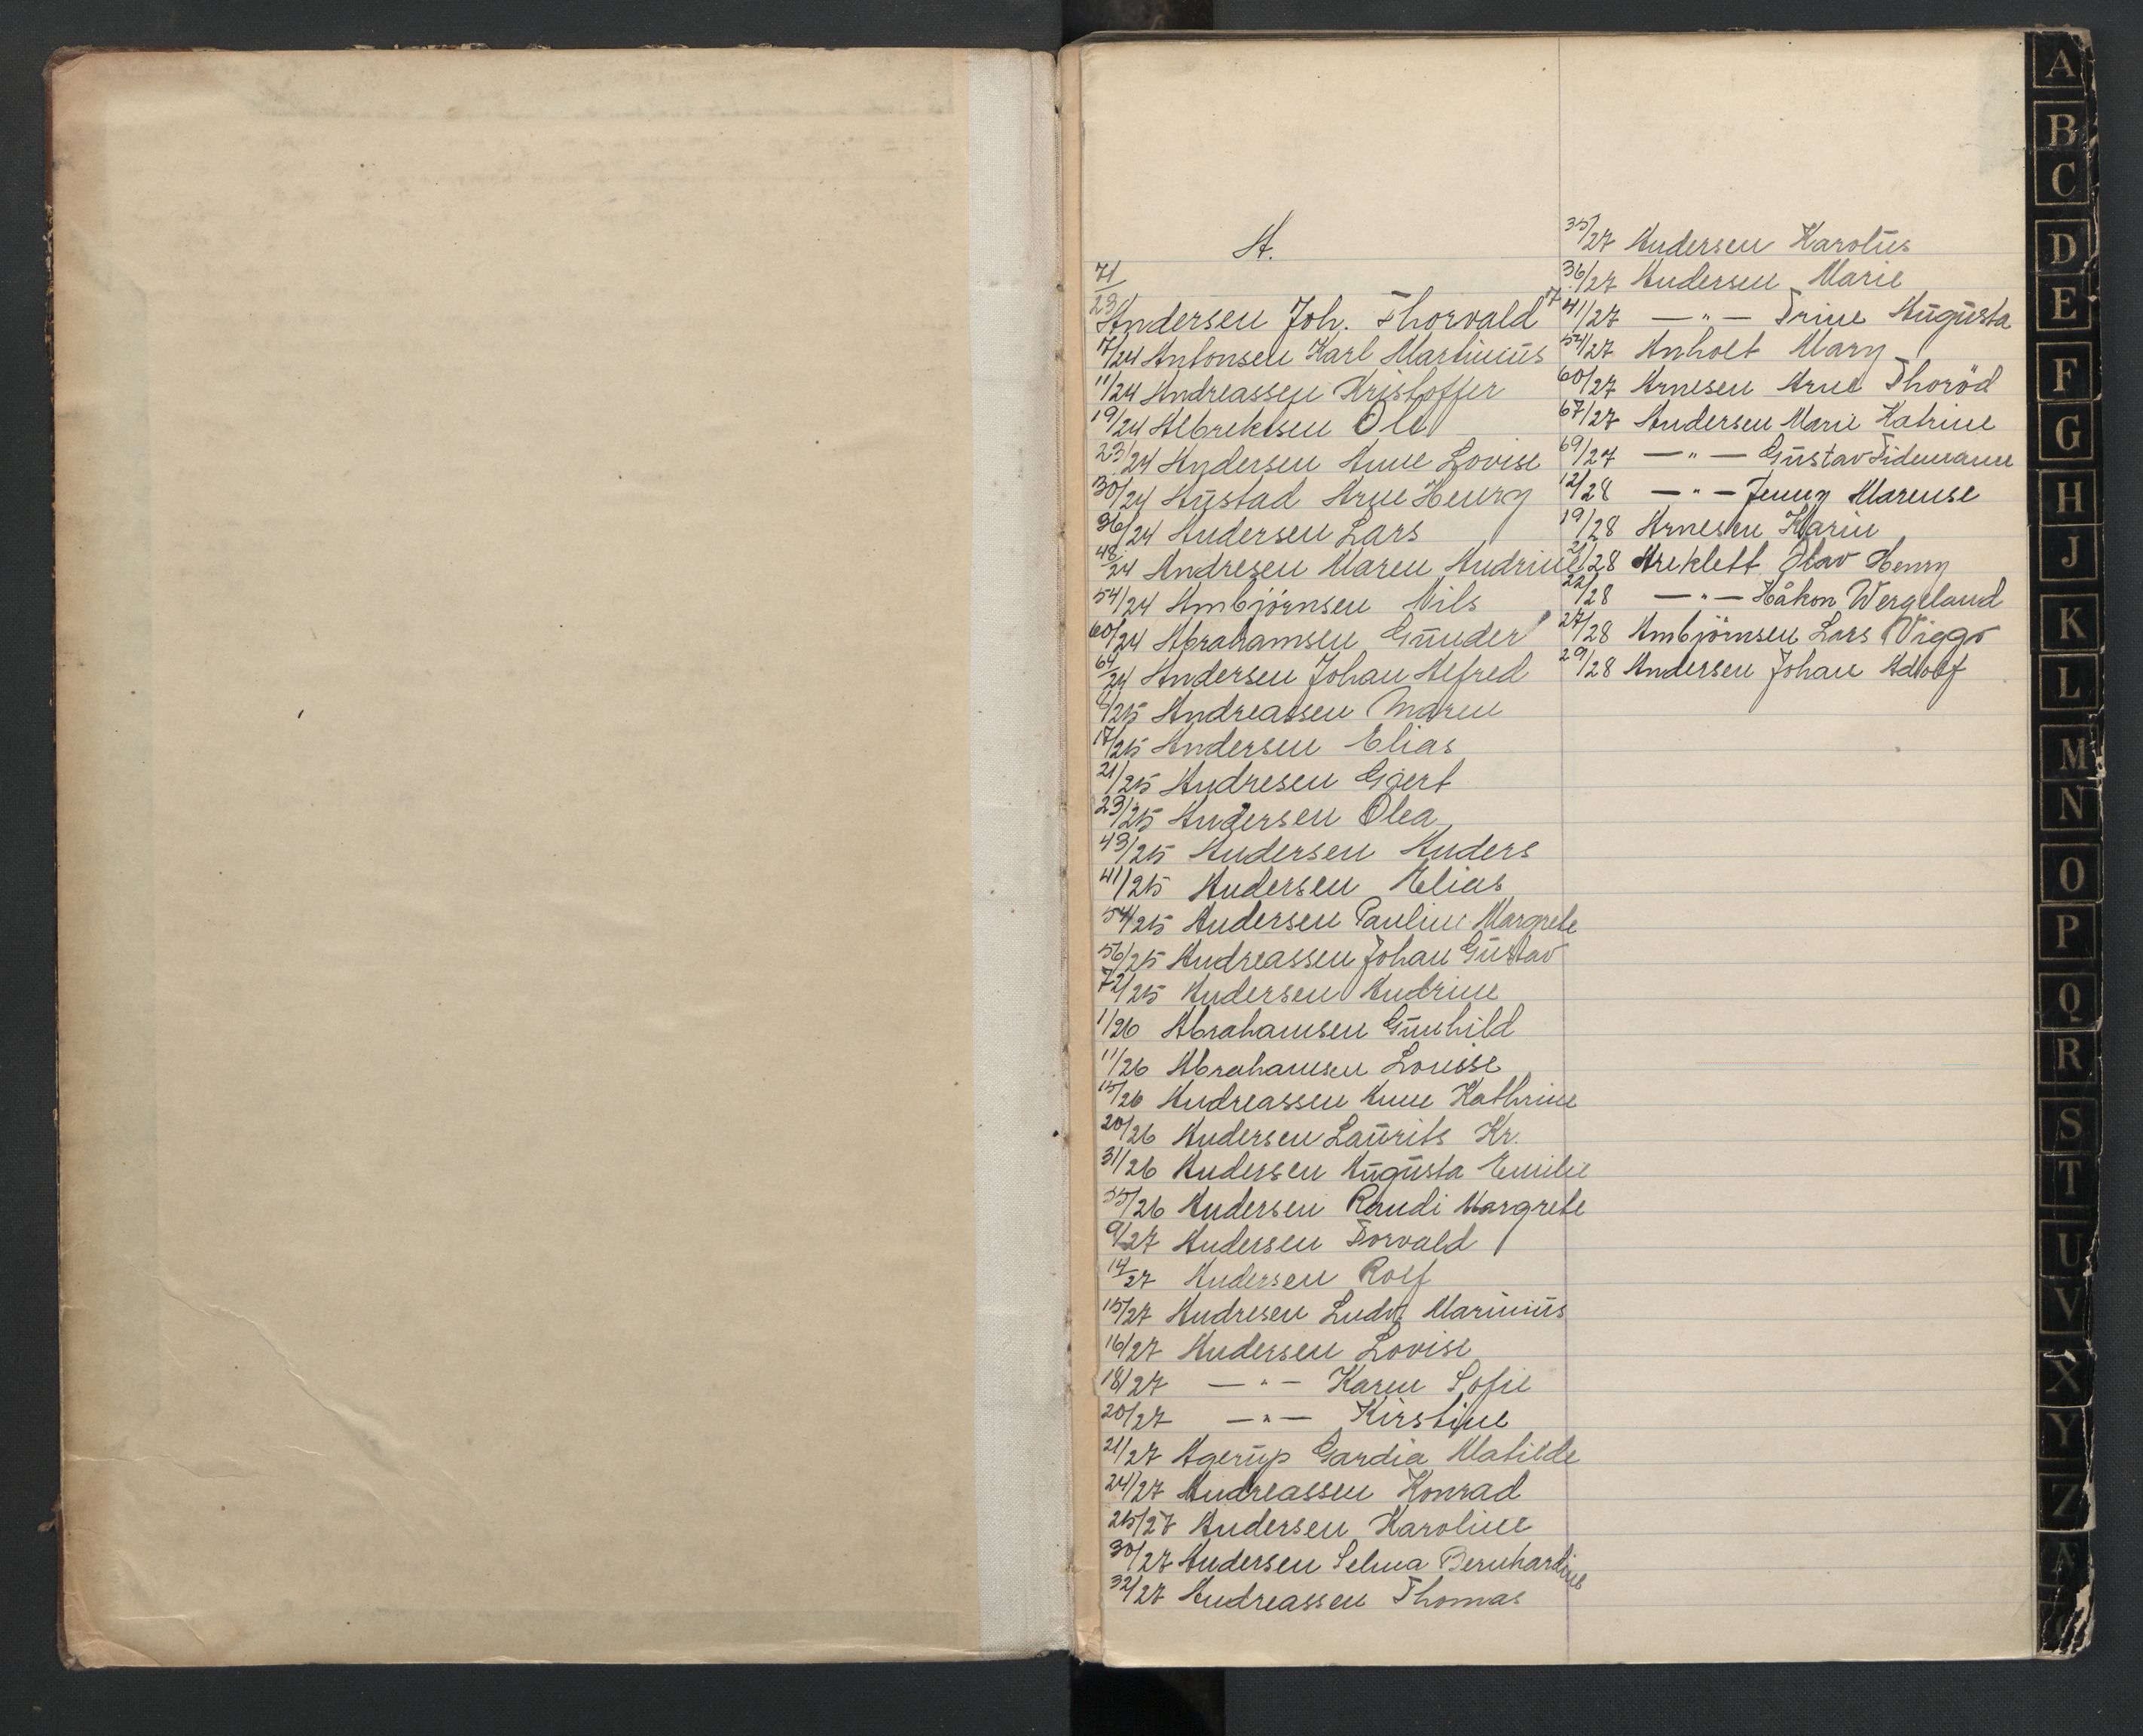 A.
71/23 Andersen Joh. Thorvald
7/24 Antonsen Karl Martinius
11/24 Andreassen Kristoffer
19/24 Albrektsen Ole
23/24 Andersen Anne Lovise
30/24 Austad Arne Henry
36/24 Andersen Lars
48/24 Andresen Maren Andrine
54/24 Ambjörnsen Nils
60/24 Abrahamsen Gunder
64/24 Andersen Johan Alfred
/25 Andreassen Maren
17/25 Andersen Elias
21/25 Andresen Gjert
23/25 Andersen Olea
43/25 Andersen Anders
41/25 Andersen Elias
54/25 Andersen Pauline Margrete
56/25 Andreassen Johan Gustav
72/25 Andersen Andrine
1/26 Abrahamsen Gunhild
11/26 Abrahamsen Louise
15/26 Andreassen Anne Kathrine
20/26 Andersen Laurits Kr.
31/26 Andersen Augusta Emilie
55/26 Andersen Randi Margrete
9/27 Andersen Torvald
14/27 Andersen Rolf
15/27 Andresen Ludv. Marinius
16/27 Andersen Lovise
18/27 — " — Karen Sofie
20/27 — " — Kirstine
21/27 Agerup Gardia Matilde
24/27 Andreassen Konrad
25/27 Andersen Karoline
30/27 Andersen Selma Bernhardine
32/27 Andreassen Thomas
35/27 Andersen Karolus
36/27 Andersen Marie
41/27 — " — Trine Augusta
54/27 Anholt Mary
60/27 Arnesen Arne Thoröd
67/27 Andersen Marie Katrine
69/27 — " — Gustav Tidemann
12/28 — " — Jenny Marense
19/28 Arnesen Karin
21/28 Areklett Olav Henry
22/28 — " — Håkon Wergeland
27/28 Ambjörnsen Lars Viggo
29/28 Andersen Johan Adolf
A
B
C
D
E
F
G
H
J
K
L
M
N
O
P
Q
R
S
T
U
V
X
Y
Z